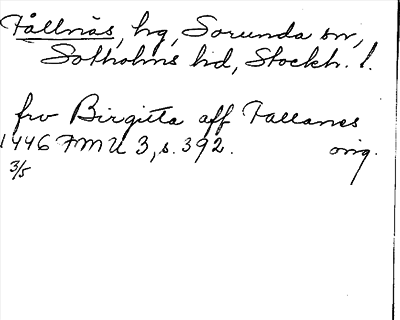 Fållnäs, hg, Sorunda sn,
Sotholms hd, Stockh. l.
fru Birgitta aff Fallanes
1446 FMU 3, s. 392. orig.
3/5